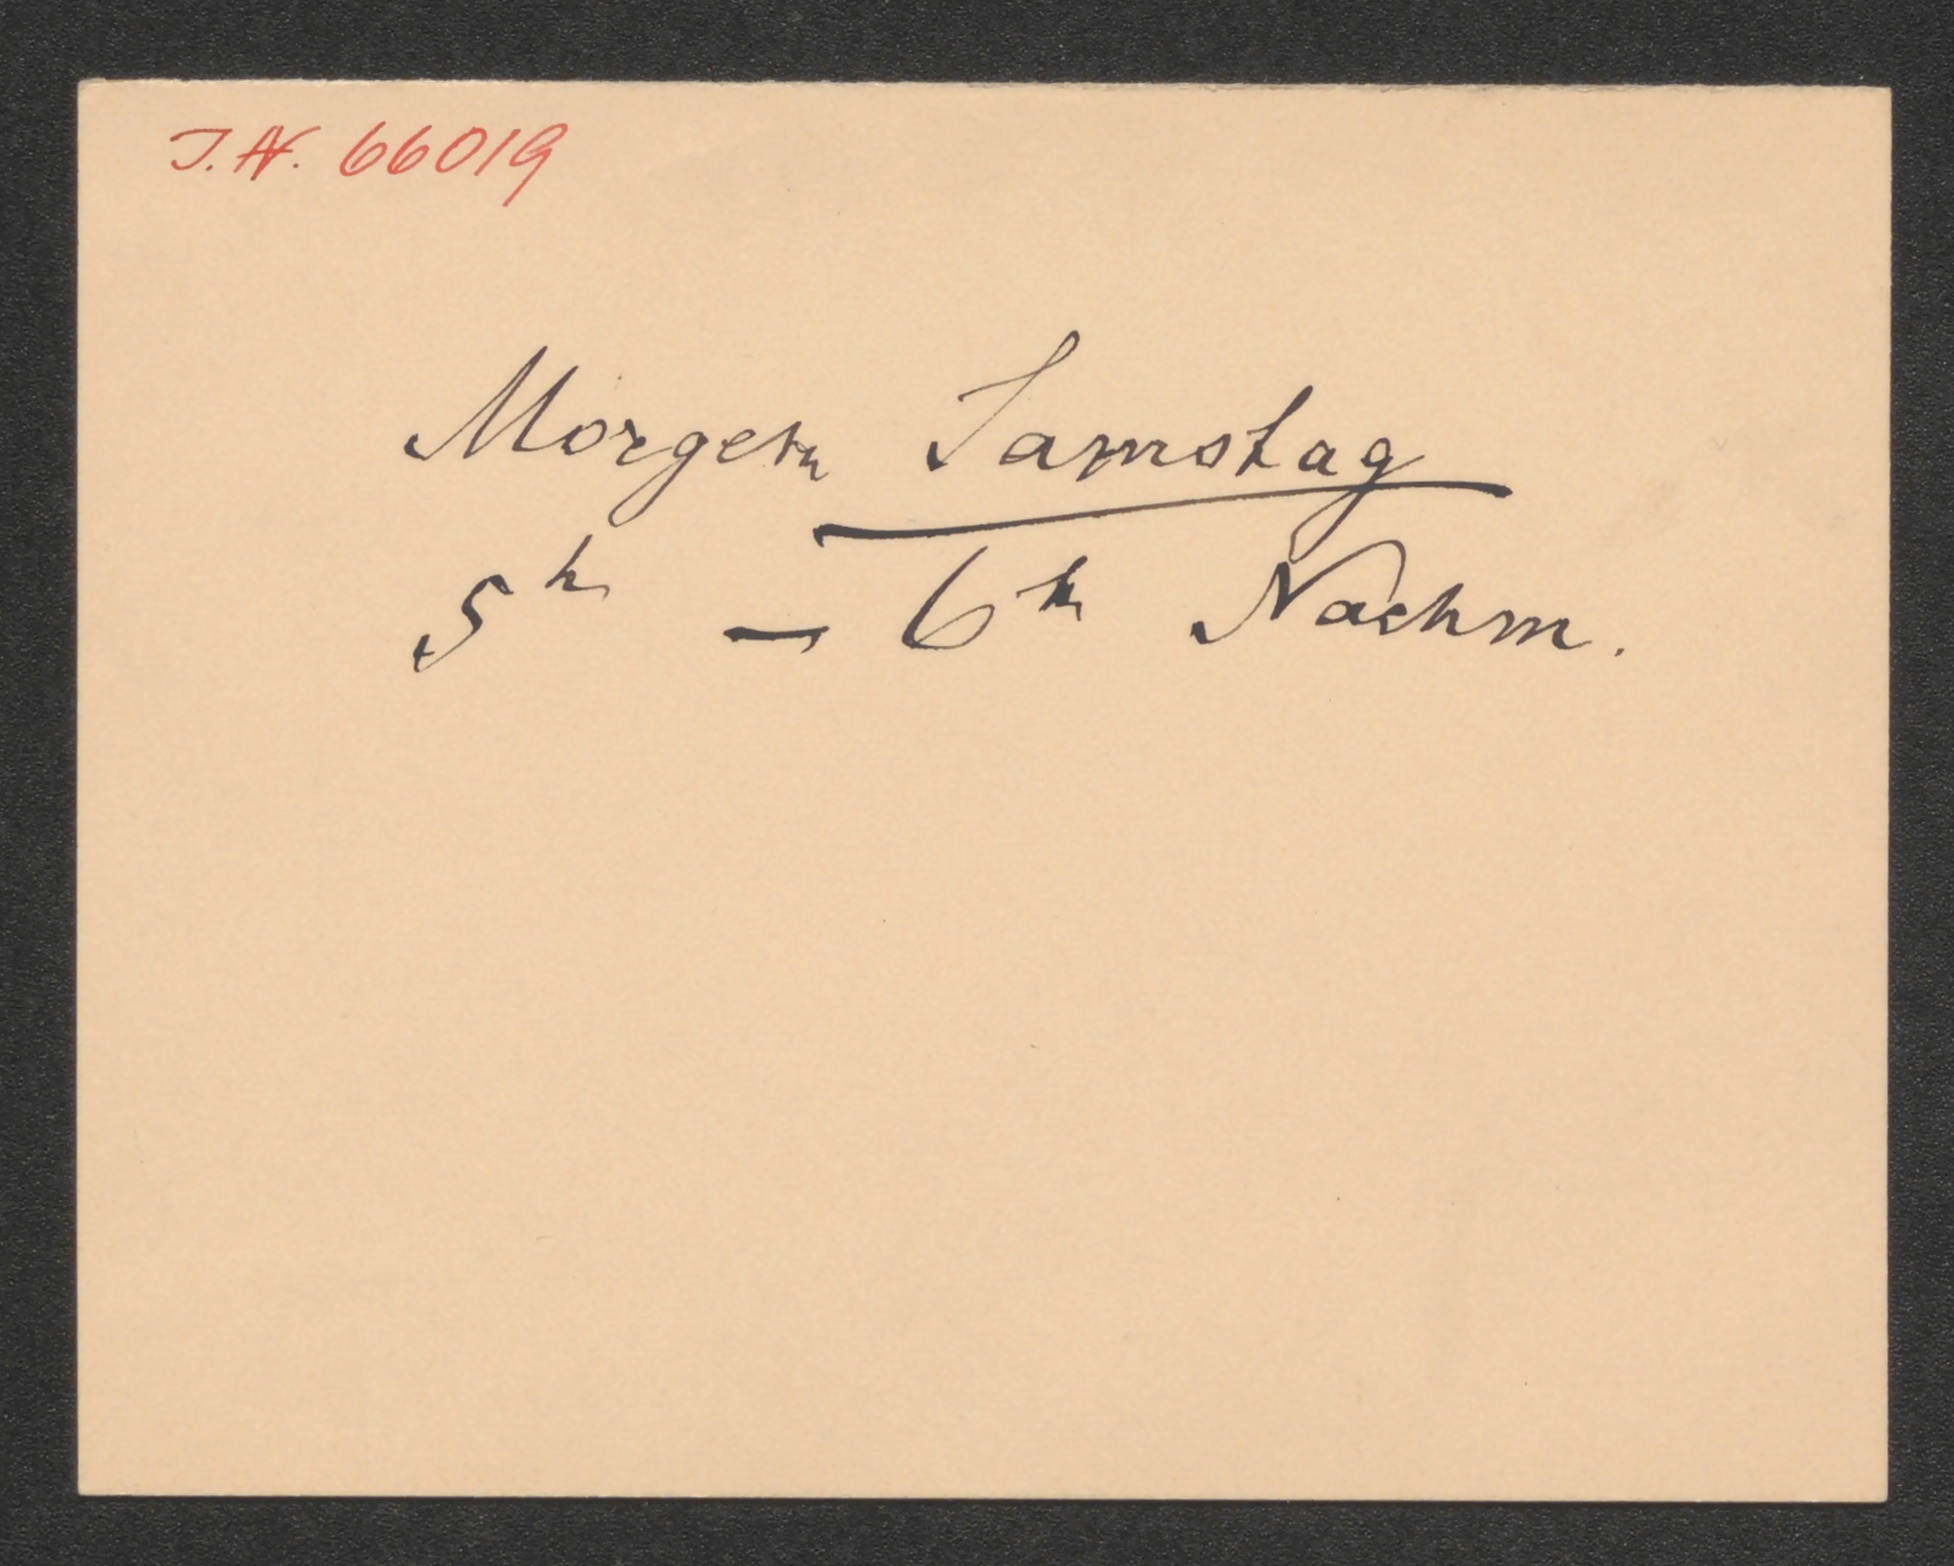 J.N. 66019
Morgen Samstag
5h – 6h Nachm.